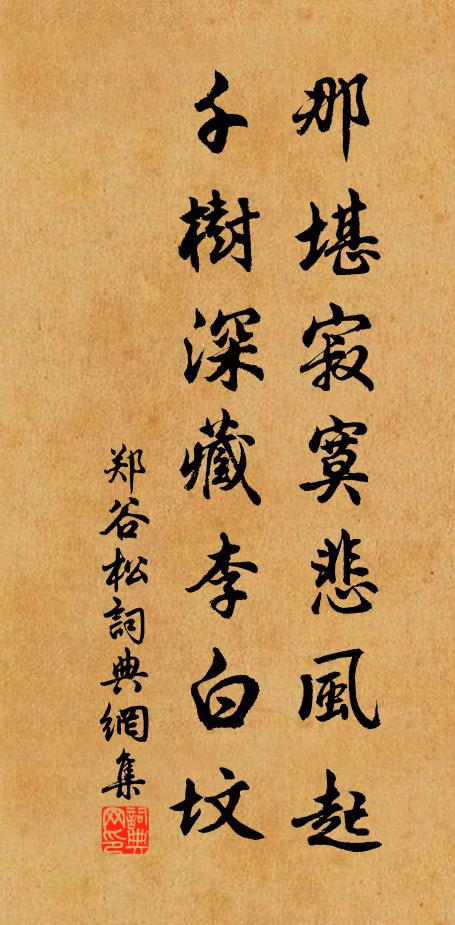 那堪寂寞悲風起
千樹深藏李白坟
郑谷松詞典網集
詞典网印